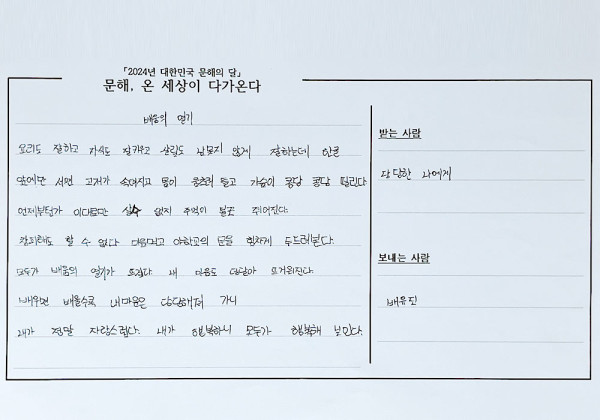 「2024년 대한민국 문해의 달」
문해, 온 세상이 다가온다
배움의 열기
요리도 잘하고 자식도 잘키우고 살림도 남못지 않게 잘하는데 안큰
앞에만 서면 고개가 숙여지고 몸이 움츠러 들고 가슴이 콩당 콩당 떨린다
언제부턴가 이대로만 살수 없지 주먹이 불끈 쥐어진다.
창피해도 할 수 없다 마음먹고 야학교의 문을 힘차게 두드려본다.
모두가 배움의 열기가 뜨겁다. 내 마음도 덩달아 뜨거워진다.
배우면 배울수록 내마음은 당당해져 가니
내가 정말 자랑스럽다. 내가 행복하니 모두가 행복해 보인다.
받는 사람
당당한 나에게
보내는 사람
배유진